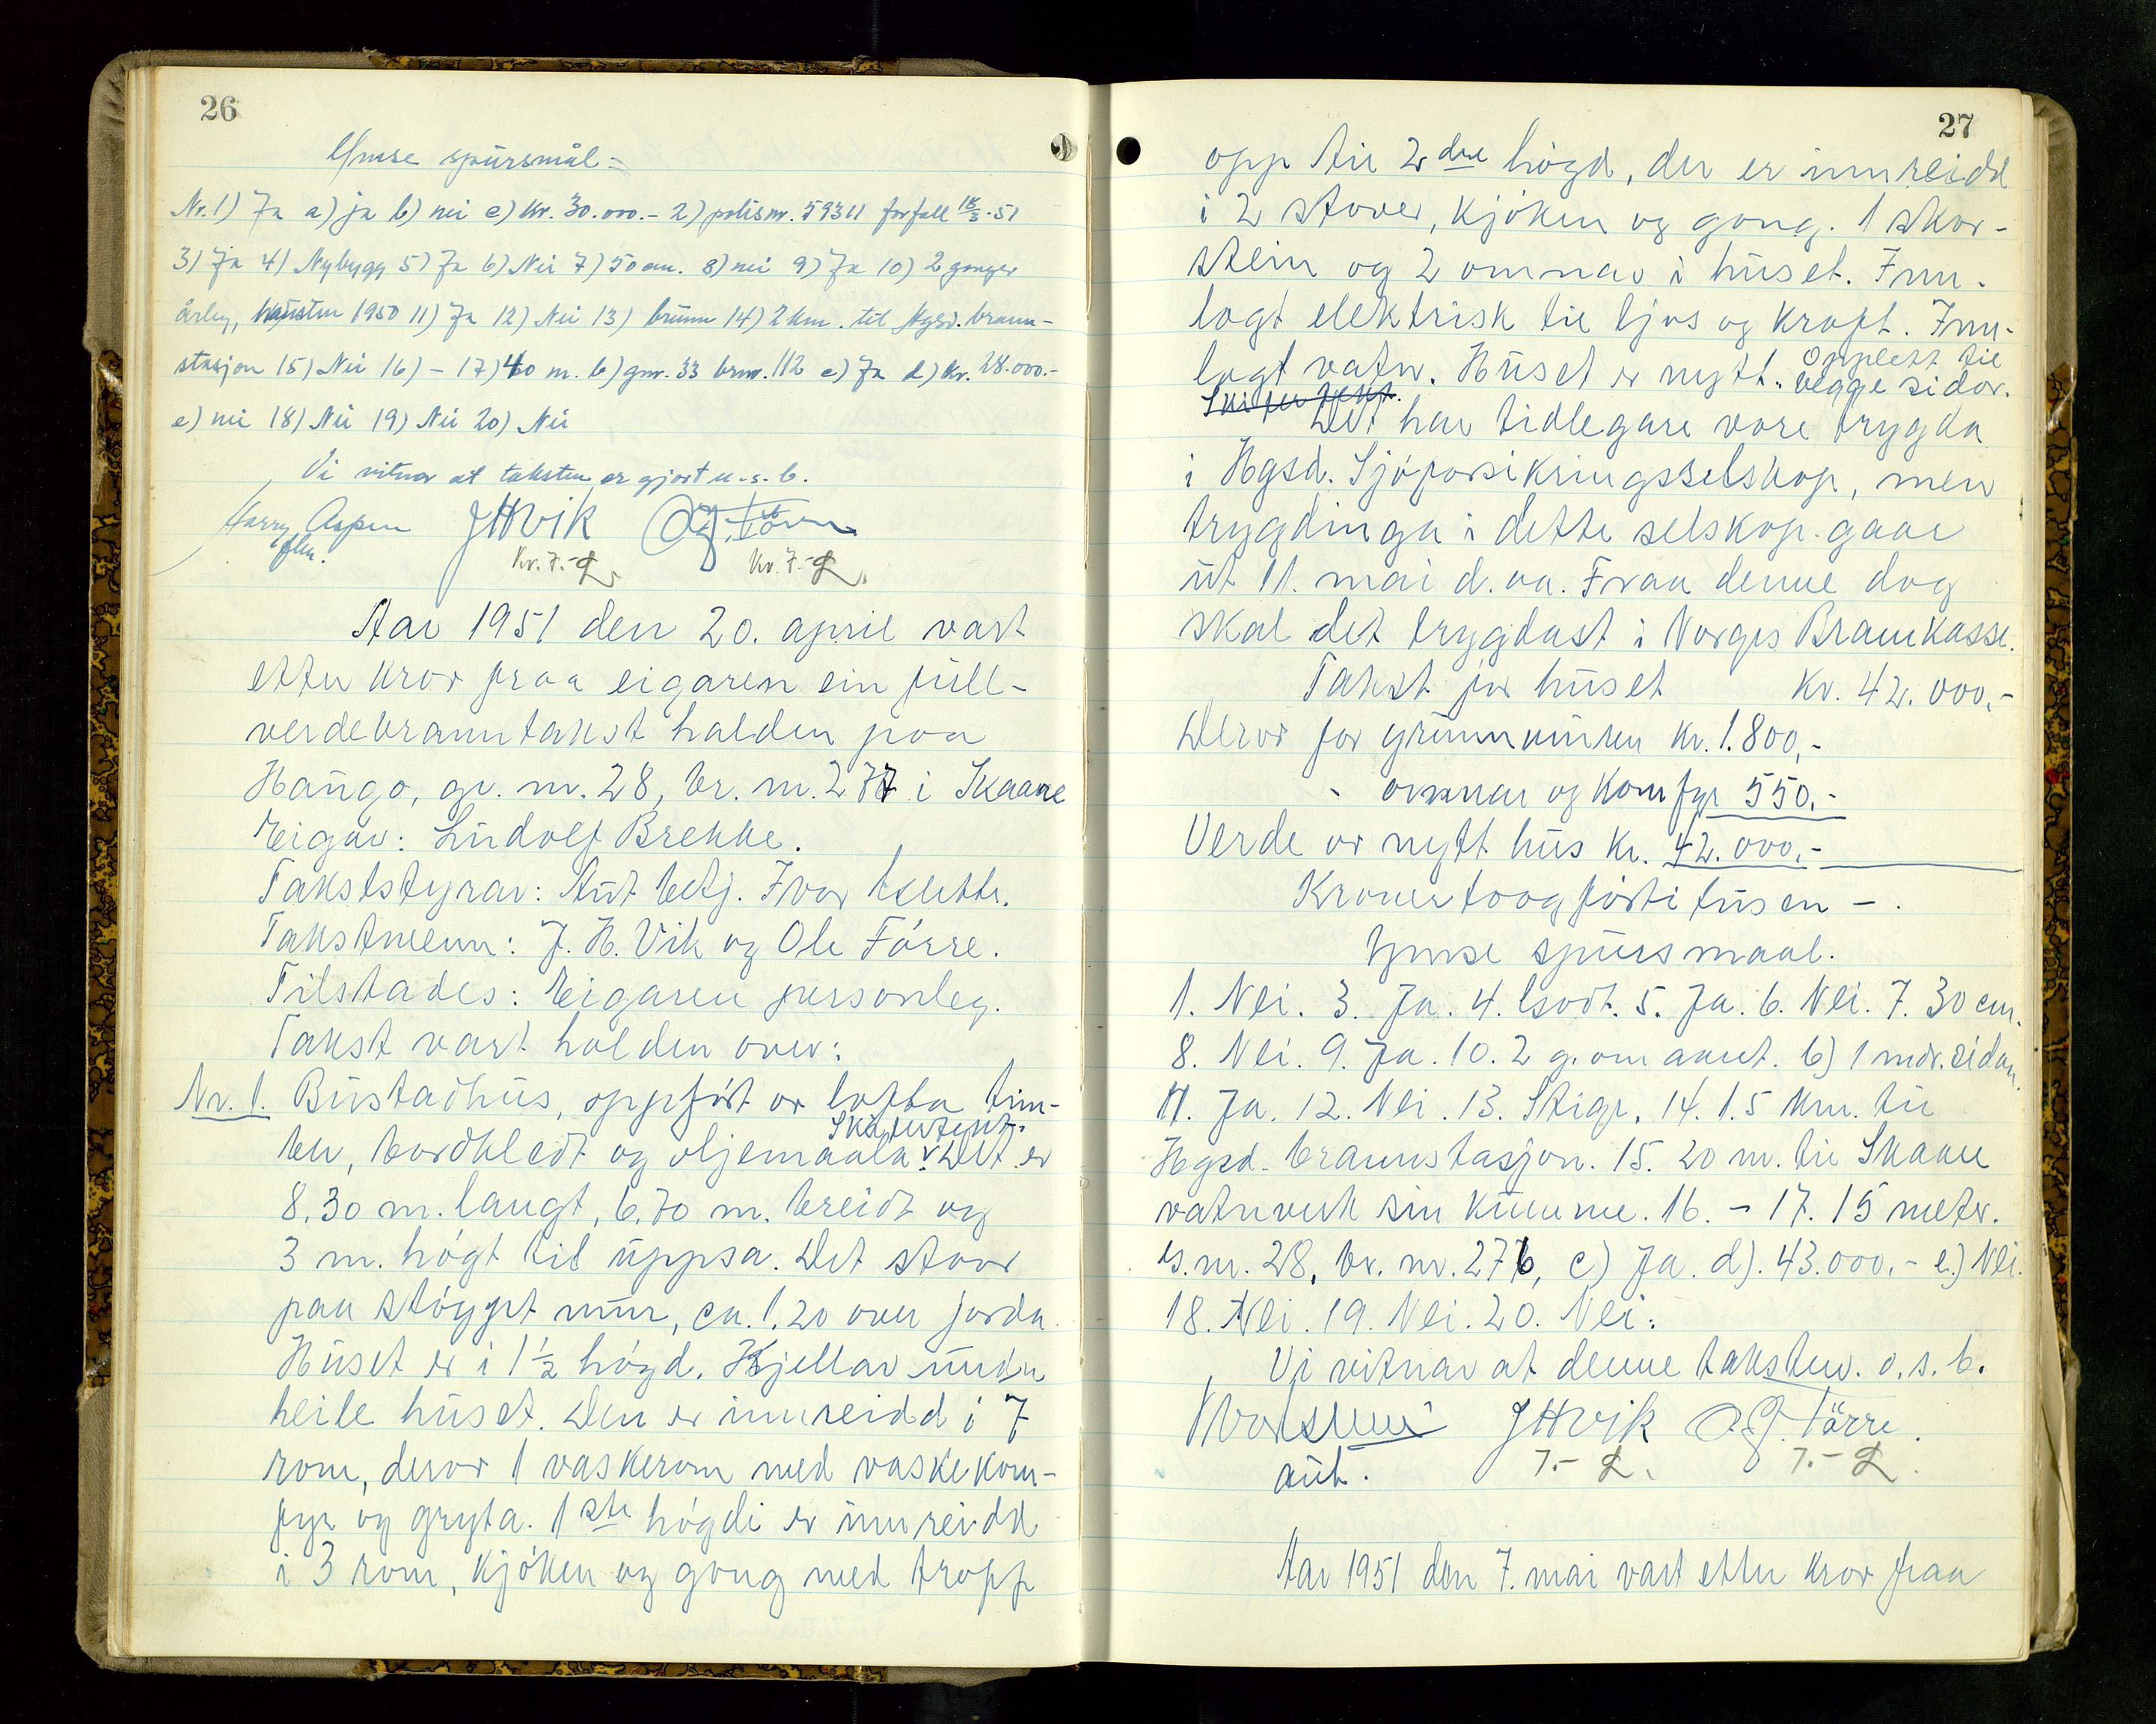 26
Ymse spursmål -
Nr. 1) Ja a) ja b) nei c) Kr. 30.000.- 2) polisnr. 59311 forfall 18/3-51
3) Ja 4) Nybygg 5) Ja 6) Nei 7) 50 cm. 8) nei 9) Ja 10) 2 gonger
årleg, hausten 1950 11) Ja 12) Nei 13) brunn 14) 2 km. til Hgsd. brann-
stasjon 15) Nei 16) - 17) 40 m. b) gnr. 33 brnr. 112 c) Ja d) Kr. 28.000.-
e) nei 18) Nei 19) Nei 20) Nei
Vi vitnar at taksten er gjort u.s.b.
Harry Aspen JHVik O.G. Förre
flm. Kr. 7.- Kr. 7.-
Aar 1951 den 20. april vart
etter krav fraa eigaren ein full-
verdebranntakst halden paa
Haugo, gr. nr. 28, br. nr. 277 i Skaare
Eigar: Ludolf Brekke.
Takststyrar: Aut. betj. Ivar
Takstmenn: J. H. Vik og Ole Førre.
Tilstades: Eigaren personleg.
Takst vart halden over:
Nr. 1. Bustadhus, oppført av lafta tim-
Skifertekt.
ber, bordkledt og oljemaala. Det er
8.30 m. langt, 6.70 m. breidt og
3 m. høgt til uppsa. Det staar
paa støypt mur, ca. 1.20 over jorda.
Huset er i 1½ høgd. Kjellar under
heile huset. Den er innreidd i 7
rom, derav 1 vaskerom med vaskekom-
fyr og gryta. 1ste høgdi er innreidd
i 3 rom, kjøken og gang med tropp
27
opp til 2dre høgd, der er innreidd
i 2 stover, kjøken og gang. 1 skor-
stein og 2 omnar i huset. Inn-
lagt elektrisk til ljos og kraft. Inn-
lagt vatn. Huset er nytt. Opplett til
vegge sidor.
Skifertekt.
Det har tidlegare vore trygda
i Hgsd. Sjøforsikringsselskap, men
trygdinga i dette selskap gaar
ut 11. mai d. aa. Fraa denne dag
skal det trygdast i Norges Brannkasse.
Takst for huset Kr. 42.000,-
Derav for grunnmuren kr. 1.800,-
- omnar og komfyr 550.-
Verde av nytt hus kr. 42.000.-
Kroner toogførti tusen -.
Ymse spursmaal.
1. Nei. 3. Ja. 4. Godt. 5. Ja. 6. Nei. 7. 30 cm.
8. Nei. 9. Ja. 10. 2 g. om aaret. b) 1 mdr. sidan.
11. Ja. 12. Nei. 13. Stige. 14. 1.5 km. til
Hgsd. brannstasjon. 15. 20 m. til Skaare
vatnverk sin kumme. 16. - 17. 15 meter.
G. nr. 28, br. nr. 276, c) Ja. d). 43.000.- e.) Nei.
18. Nei. 19. Nei. 20. Nei.
Vi vitnar at denne taksten. o.s.b.
JHVik O.G. Förre.
aut. 7.- 7.-
Aar 1951 den 7. mai vart etter krav fraa